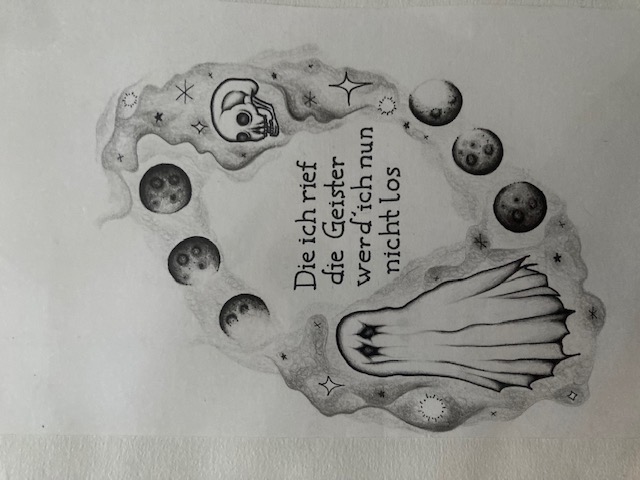 Die ich rief
die Geister
werd'ich nun
nicht los